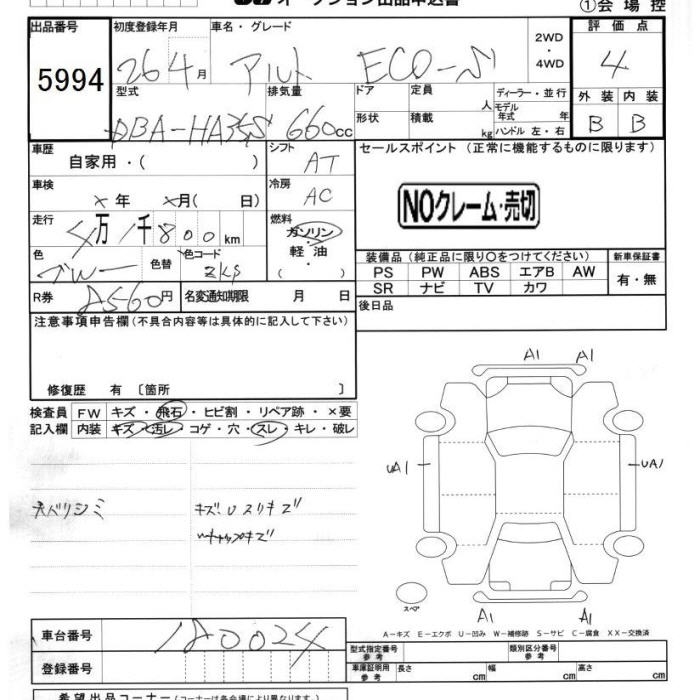 オークション出品申込書
①会場控
出品番号 初度登録年月 車名・グレード 2WD・4WD 評価点
5994 26 4月 アルト ECO-S 4
型式 排気量 ドア 定員 人 ディーラー・並行 外装 内装
DBA-HA35S 660cc 形状 積載 kg モデル年式 年 ハンドル 左・右 B B
車歴 自家用・( ) シフト AT セールスポイント (正常に機能するものに限ります)
車検 × 年 ×月( 日) 冷房 AC
NOクレーム・売切
走行 4万1千800km 燃料 ガソリン・軽油・( )
色 ブルー 色替 色コード
装備品 (純正品に限り〇をつけてください) 新車保証書
PS PW ABS エアB AW 有・無
SR ナビ TV カワ
R券 円 名変通知期限 月 日 後日品
注意事項申告欄(不具合内容等は具体的に記入して下さい)
修復歴 有 〔箇所 〕
検査員 FW キズ・飛石・ヒビ割・リペア跡・×要
記入欄 内装 キズ・汚レ・コゲ・穴・スレ・キレ・破レ
A1 A1
UA1 UA1
スペア
A1 A1
A-キズ E-エクボ U-凹み W-補修跡 S-サビ C-腐食 XX-交換済
車台番号 180024
登録番号
型式指定番号 参考 類別区分番号 参考
車庫証明用 参考 長さ cm 幅 cm 高さ cm
希望出品コーナー(コーナーは各会場により異なります)